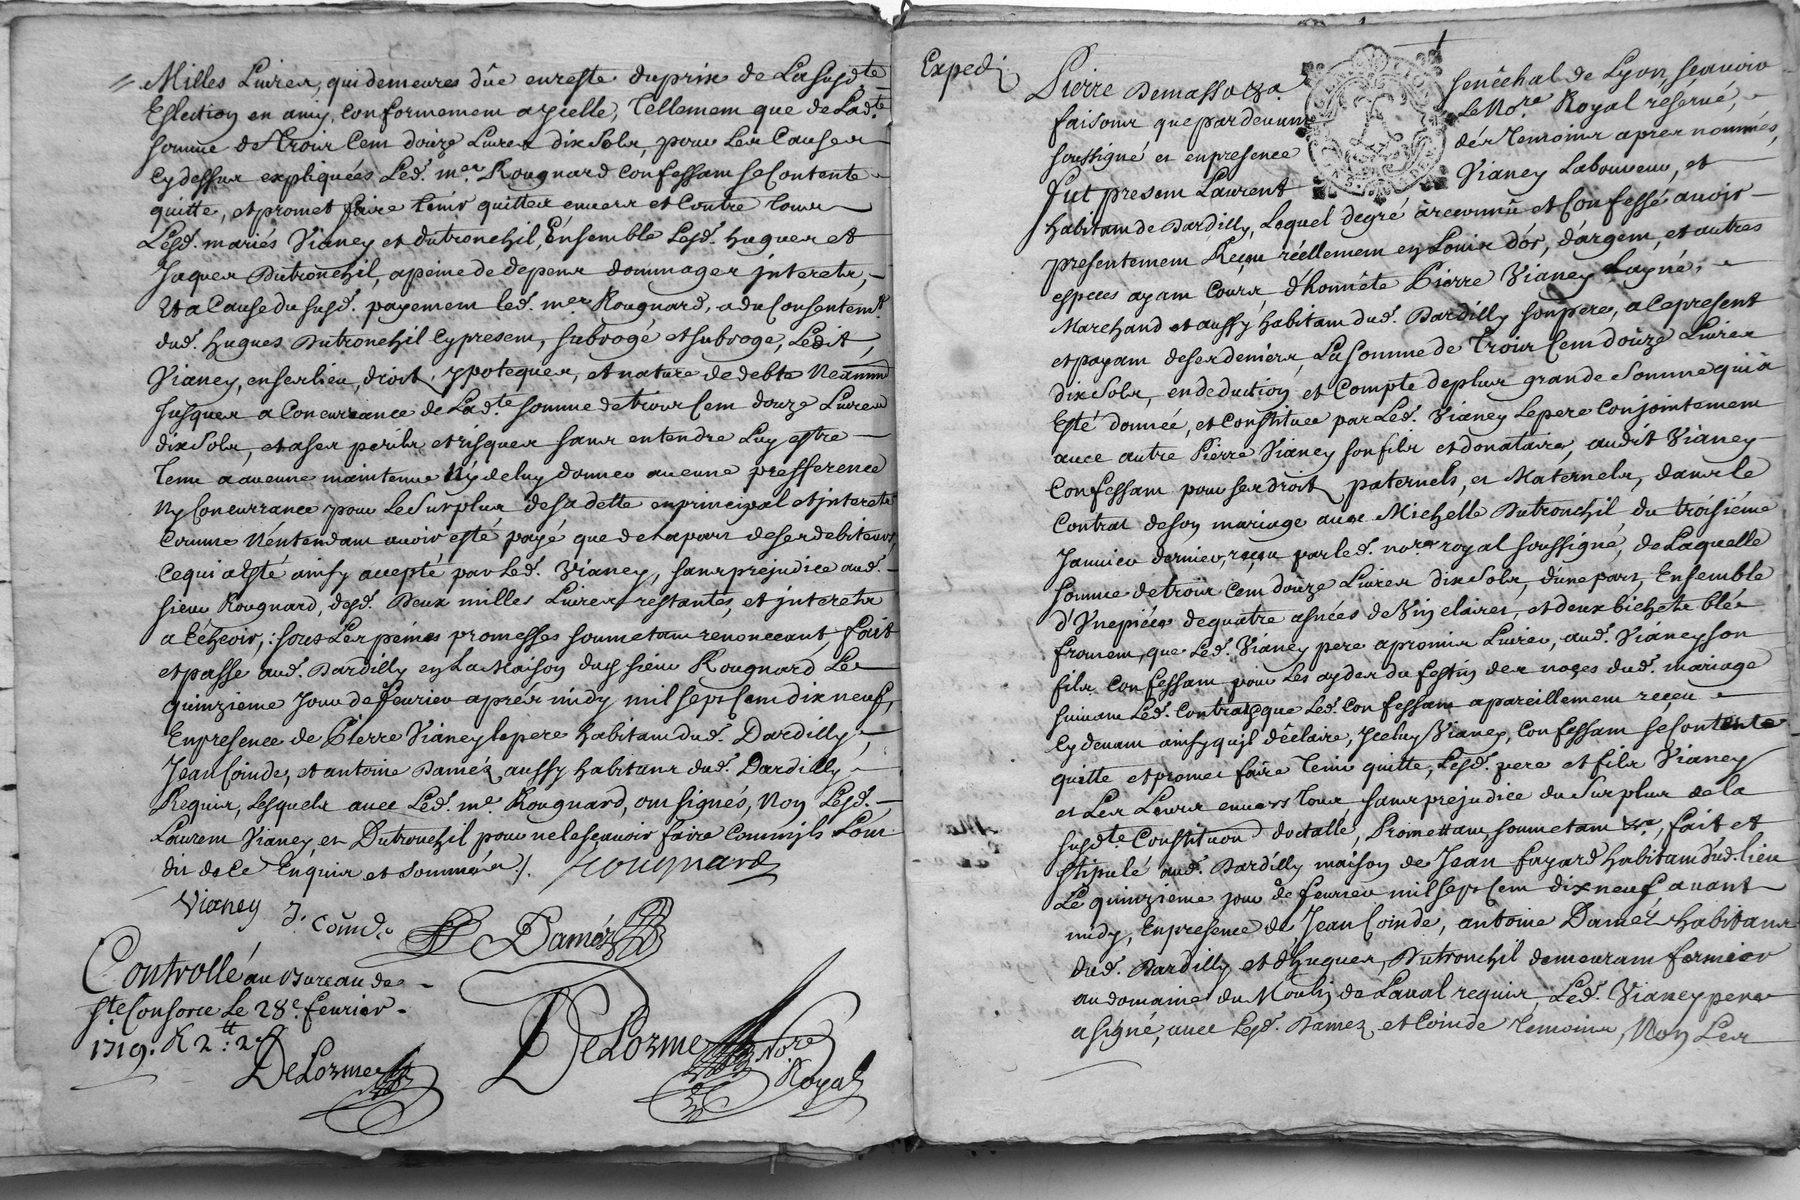 Milles Livres, qui demeures düe en reste du prix de La susd.te
Eslection en amy, conformement a ycelle, Tellement que de Lad.te
somme de trois Cent douze Livres dix sols, pour Les Causes
Cy dessus expliquées Led. m.re Rougnard confessant se Contente
quitte, et promet faire tenir quittes envers et Contre tous
Lesd. mariés Vianey et dutronchil, Ensemble Lesd. hugues et
Jaques Dutronchil, a peine de depens dommages jnterets,
Et a Cause du susd. payement led. m.re Rougnard, a du Consentem.t
dud. hugues Dutronchil Cy present, subrogé et subroge, Ledit
Vianey, en ses lieu, droit, ypoteques, et nature de debte Neammt
jusques a Concurrance de Lad.te somme de trois Cent douze Livres
dix sols, et a ses perils et risques sans entendre Luy estre
tenu a aucune maintenue Ny de luy donner aucune presference
Ny Concurrance pour Le surplus de sa dette en principal et jnterets
Comme N'entendant avoir esté payé que de sa part de ses debiteurs
Ce qui a esté ainsy accepté par Led. Vianey, sans prejudice aud.
sieur Rougnard, desd. Deux milles Livres restantes, et jnterets
a echeoir, : sous Les peines promesses soumettant renonceant, fait
et passe aud. Dardilly en La Maison dud sieur Rougnard Le
quinzieme Jour de fevrier aprés midy mil sept Cent dix neuf,
En presence de Pierre Vianey le pere habitant dud. Dardilly,
Jean Coinde, et antoine Daméz, aussy habitans dud. Dardilly
Requis, Lesquels avec Led. m.e Rougnard, ont signés, Non Lesd.
Laurent Vianey, et Dutronchil pour ne le sçavoir faire Comm'ils L'ont
dit de Ce Enquis et sommés ./. Rougnard
Vianey J. coinde Daméz
Controllé au Bureau de
S.te Consorce Le 28.e fevrier
1719. R 2 tt : 2
DeLorme
DeLorme No.re Royal
Expedi
Pierre Demasso &a. senêchal de Lyon, scavoir
faisons que par devant Le No.re Royal reservé,
soussigné et en presence dés temoins apres nommés,
fut present Laurent Vianey Laboureur, et
habitant de Dardilly, Lequel degré à reconnû et Confessé avoir
presentement Reçu réellement en Louis d'or, d'argent, et autres
especes ayant Cours, d'honnête Pierre Vianey Layné,
Marchand et aussy habitant dud. Dardilly son pere, a Ce present
et payant de ses deniers, La somme de trois Cent douze Livres
dix sols, en deduction et Compte de plus grande somme qui a
Esté donnée, et Constituee par Led. Vianey Le pere Conjointement
avec autre Pierre Vianey son fils et donataire, audit Vianey
Confessant pour ses droits paternels, et Maternels, dans le
Contrat de son mariage avec Michelle Dutronchil du troisiéme
Janvier dernier, reçu par led. nore royal soussigné, de Laquelle
somme de trois cent douze Livres dix sols, d'une part, Ensemble
d'Une piéce de quatre asnées de Vin clairet, et deux bichets bléz
froment, que Led. Vianey pere a promis Livrer, aud. Vianey son
fils Confessant pour Les ayder du festin des noçes dud. mariage
suivant Led. Contrat que Led. Confessant a pareillement reçeu
Cy devant ainsy qu'il déclaire, Jceluy Vianey, Confessant se Contente
quitte et promet faire tenir quitte, Lesd. pere et fils Vianey
et Les Leurs envers tous sans prejudice du surplus de la
susd.te Constitution dottalle, Promettant, soumettant &a, fait et
stipulé aud. Dardilly maison de Jean fayard habitant dud. lieu
Le quinzieme jour de fevrier mil sept Cent dix neuf avant
midy, En presence de Jean Coinde, antoine Daméz habitans
dud. Dardilly et d'hugues, Dutronchil demeurant fermier
au domaine du Moulin de Laval requis, Led. Vianey pere
a signé, avec Lesd. Damez et Coinde temoins, Non Les